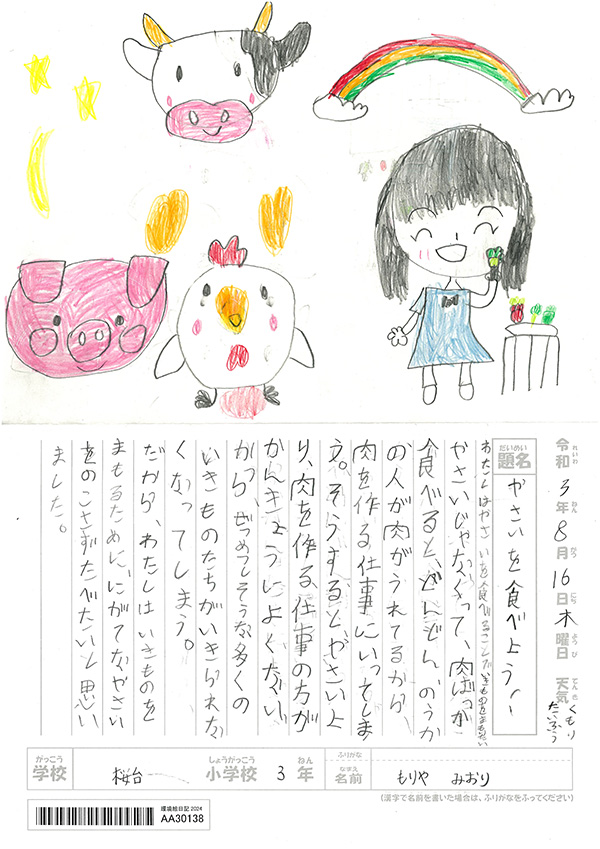 れいわ ねん がつ にち ようび てんき
令和3年8月16日木曜日 天気 くもり たいふう
だいめい
題名 やさいを食べよう〜
わたしはやさいを食べることでいきものをまもりたい
やさいじゃなくって、肉ばっか
食べると、どんどん、のうか
の人が肉がうれてるから、
肉を作る仕事にいってしま
う。そうすると、やさいよ
り、肉を作る、仕事の方が
かんきょうによくない
から、ぜつめつしそうな多くの
いきものたちがいきられな
くなってしまう。
だから、わたしはいきものを
まもるために、にがてなやさい
をのこさずたべたいと思い
ました。
がっこう しょうがっこう ねん ふりがな なまえ
学校 桜台 小学校 3 年 名前 もりや みおり
(漢字で名前を書いた場合は、ふりがなをふってください)
環境絵日記 2024
AA30138